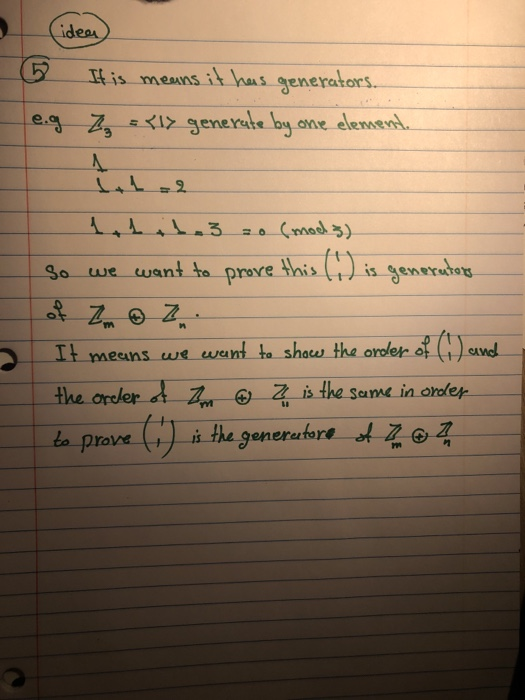 idea
⑤ It is means it has generators.
e.g ℤ₃ = <1> generate by one element.
1
1+1 = 2
1+1+1=3 =0 (mod 3)
So we want to prove this (1 1) is generators
of ℤₘ ⊕ ℤₙ.
It means we want to show the order of (1 1) and
the order of ℤₘ ⊕ ℤₙ is the same in order
to prove (1 1) is the generators of ℤₘ ⊕ ℤₙ